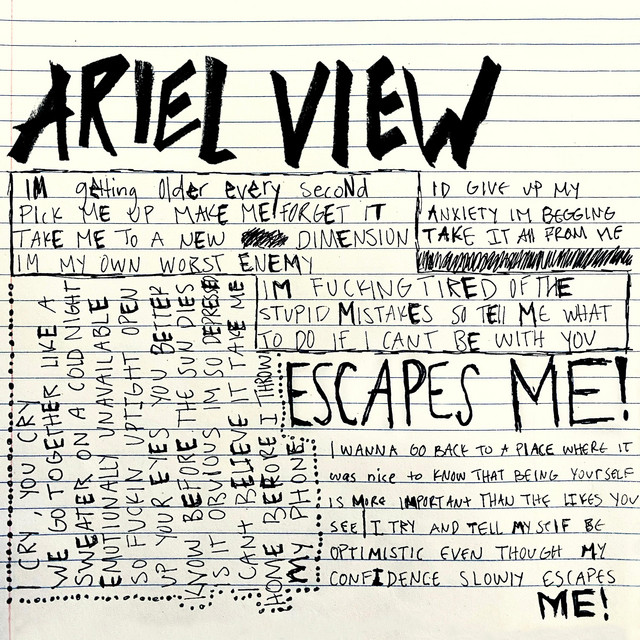 ARIEL VIEW
IM getting Older every secoNd
PICK ME UP MAKE ME FORGET IT
TAKE ME TO A NEW DIMENSION
IM MY OWN WORST ENEMY
ID GIVE UP MY
ANXIETY IM BEGGING
TAKE IT All FROM ME
IM FUCKING TIRED OF THE
STUPID MISTAKES SO TEll ME WHAT
TO DO IF I CANT BE WITH YOU
I CRY, YOU CRY
WE GO TOGETHER LIKE A
SWEATER ON A COLD NIGHT
EMOTIONALLY UNAVAILABLE
SO FUCKIN UPTIGHT OPEN
UP YOUR EYES YOU BETTER
KNOW BEFORE THE SUN DIES
IS IT OBVIOUS IM SO DEPRESSED
I CANT BELIEVE IT TAKE ME
HOME BEFORE I THROW
MY PHONE
ESCAPES ME!
I WANNA GO BACK TO A PlACE WHERE IT
was nice to KNOW THAT BEING YOURSELF
IS MORE IMPORTANT THAN THE LIKES YOU
SEE I TRY AND TELL MYSElF BE
OPTIMISTIC EVEN THOUGH MY
CONFIDENCE SLOWlY ESCAPES
ME!